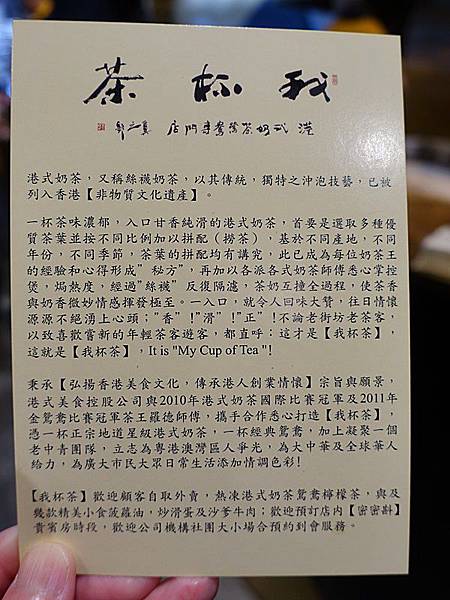 我杯茶
港式奶茶鴛鴦專門店
港式奶茶,又稱絲襪奶茶,以其傳統,獨特之沖泡技藝,已被
列入香港【非物質文化遺產】。
一杯茶味濃郁,入口甘香純滑的港式奶茶,首要是選取多種優
質茶葉並按不同比例加以拼配(撈茶),基於不同產地,不同
年份,不同季節,茶葉的拼配均有講究,此已成為每位奶茶王
的經驗和心得形成"秘方",再加以各派各式奶茶師傅悉心掌控
煲,焗熱度,經過"絲襪"反復隔濾,茶奶互撞全過程,使茶香
與奶香微妙情感揮發極至。一入口,就令人回味大贊,往日情懷
源源不絕湧上心頭;"香"!"滑"!"正"!不論老街坊老茶客,
以致喜歡嘗新的年輕茶遊客,都直呼:這才是【我杯茶】,
這就是【我杯茶】, It is "My Cup of Tea "!
秉承【弘揚香港美食文化,傳承港人創業情懷】宗旨與願景,
港式美食控股公司與2010年港式奶茶國際比賽冠軍及2011年
金鴛鴦比賽冠軍茶王羅德師傅,攜手合作悉心打造【我杯茶】,
憑一杯正宗地道星級港式奶茶,一杯經典鴛鴦,加上凝聚一個
老中青團隊,立志為粵港澳灣區人爭光,為大中華及全球華人
給力,為廣大市民大眾日常生活添加情調色彩!
【我杯茶】歡迎顧客自取外賣,熱凍港式奶茶鴛鴦檸檬茶,與及
幾款精美小食菠蘿油,炒滑蛋及沙爹牛肉;歡迎預訂店內【密密斟】
貴賓房時段,歡迎公司機構社團大小場合預約到會服務。